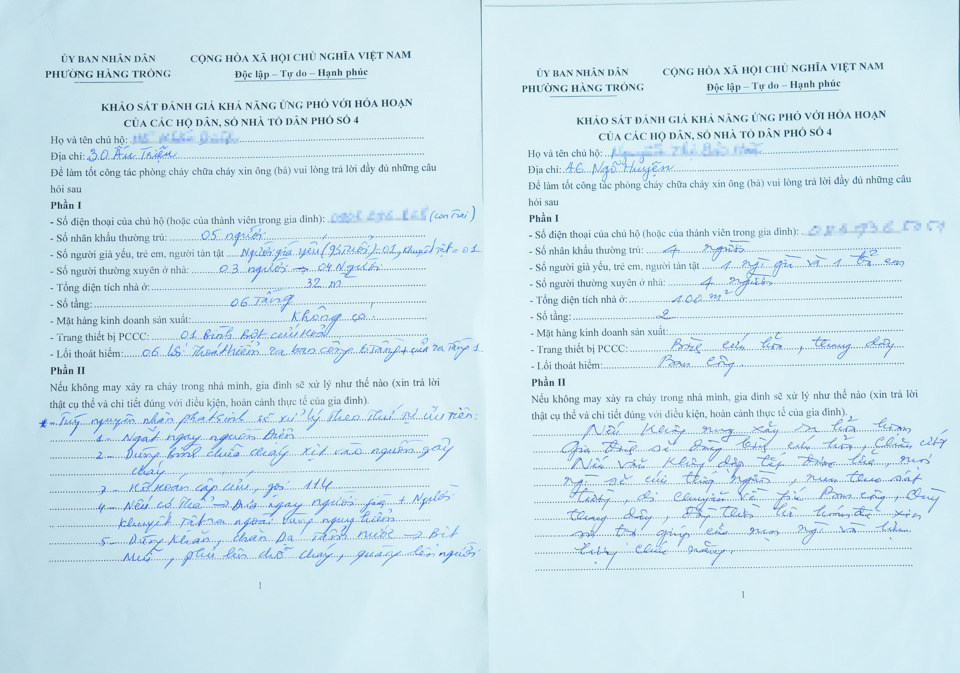 ỦY BAN NHÂN DÂN
PHƯỜNG HÀNG TRỐNG
CỘNG HÒA XÃ HỘI CHỦ NGHĨA VIỆT NAM
Độc lập – Tự do – Hạnh phúc
KHẢO SÁT ĐÁNH GIÁ KHẢ NĂNG ỨNG PHÓ VỚI HỎA HOẠN
CỦA CÁC HỘ DÂN, SỐ NHÀ TỔ DÂN PHỐ SỐ 4
Họ và tên chủ hộ:
Địa chỉ: 30 Ấu Triệu
Để làm tốt công tác phòng cháy chữa cháy xin ông (bà) vui lòng trả lời đầy đủ những câu
hỏi sau
Phần I
- Số điện thoại của chủ hộ (hoặc của thành viên trong gia đình): (con trai)
- Số nhân khẩu thường trú: 05 người
- Số người già yếu, trẻ em, người tàn tật Người già yếu (95 tuổi) = 01, khuyết tật = 01
- Số người thường xuyên ở nhà: 03 người → 04 Người
- Tổng diện tích nhà ở: 32 m²
- Số tầng: 06 Tầng
- Mặt hàng kinh doanh sản xuất: Không có
- Trang thiết bị PCCC: 01 Bình bột cứu hoả
- Lối thoát hiểm: 06 lối thoát hiểm ra ban công 6 tầng + cửa ra tầng 1
Phần II
Nếu không may xảy ra cháy trong nhà mình, gia đình sẽ xử lý như thế nào (xin trả lời
thật cụ thể và chi tiết đúng với điều kiện, hoàn cảnh thực tế của gia đình).
* Tùy nguyên nhân phát sinh sẽ xử lý theo thứ tự ưu tiên:
1 - Ngắt ngay nguồn Điện
2 - Dùng bình chữa cháy xịt vào nguồn gây
cháy
3 - Hô hoán cấp cứu, gọi 114
4 - Nếu có thể → Đưa ngay người già + Người
khuyết tật ra ngoài vùng nguy hiểm
5 - Dùng khăn, chăn Dạ tẩm nước → Bịt
Mũi, phủ lên chỗ cháy, quàng lên người
1
ỦY BAN NHÂN DÂN
PHƯỜNG HÀNG TRỐNG
CỘNG HÒA XÃ HỘI CHỦ NGHĨA VIỆT NAM
Độc lập – Tự do – Hạnh phúc
KHẢO SÁT ĐÁNH GIÁ KHẢ NĂNG ỨNG PHÓ VỚI HỎA HOẠN
CỦA CÁC HỘ DÂN, SỐ NHÀ TỔ DÂN PHỐ SỐ 4
Họ và tên chủ hộ:
Địa chỉ: 46 Ngõ Huyện
Để làm tốt công tác phòng cháy chữa cháy xin ông (bà) vui lòng trả lời đầy đủ những câu
hỏi sau
Phần I
- Số điện thoại của chủ hộ (hoặc của thành viên trong gia đình):
- Số nhân khẩu thường trú: 4 người
- Số người già yếu, trẻ em, người tàn tật 1 ng già và 1 trẻ em
- Số người thường xuyên ở nhà: 4 người
- Tổng diện tích nhà ở: 100 m²
- Số tầng: 2
- Mặt hàng kinh doanh sản xuất:
- Trang thiết bị PCCC: Bình cứu hỏa, thang dây
- Lối thoát hiểm: Ban công
Phần II
Nếu không may xảy ra cháy trong nhà mình, gia đình sẽ xử lý như thế nào (xin trả lời
thật cụ thể và chi tiết đúng với điều kiện, hoàn cảnh thực tế của gia đình).
Nếu không may xảy ra hỏa hoạn
Gia đình sẽ dùng bình cứu hỏa, chữa cháy
Nếu vẫn không dập tắt được lửa, mọi
di chuyển ra phía Ban công, Dùng
thang dây, đồng thời hô hoán để xin
sự trợ giúp của mọi ng và
lượng chức năng.
1